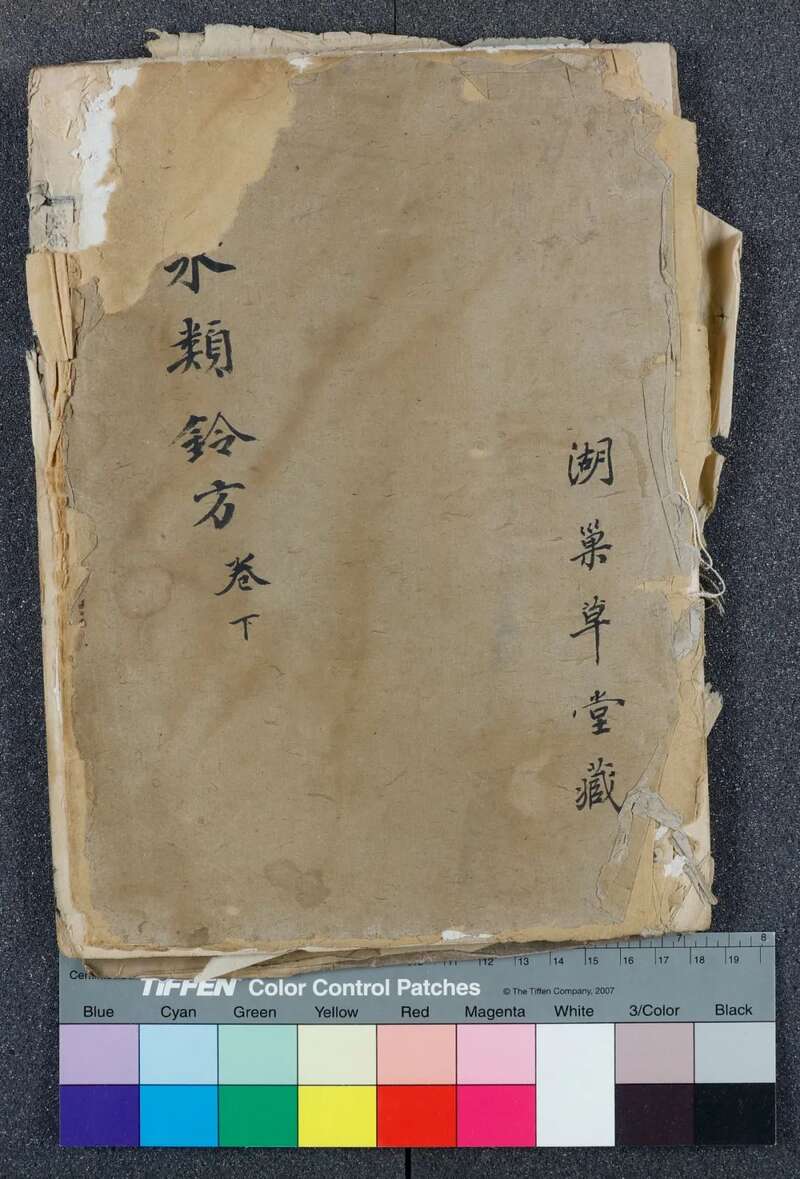 湖巢草堂藏
永類鈴方 卷下
7 8
11 12 13 14 15 16 17 18 19
TIFFEN Color Control Patches © The Tiffen Company, 2007
Blue Cyan Green Yellow Red Magenta White 3/Color Black